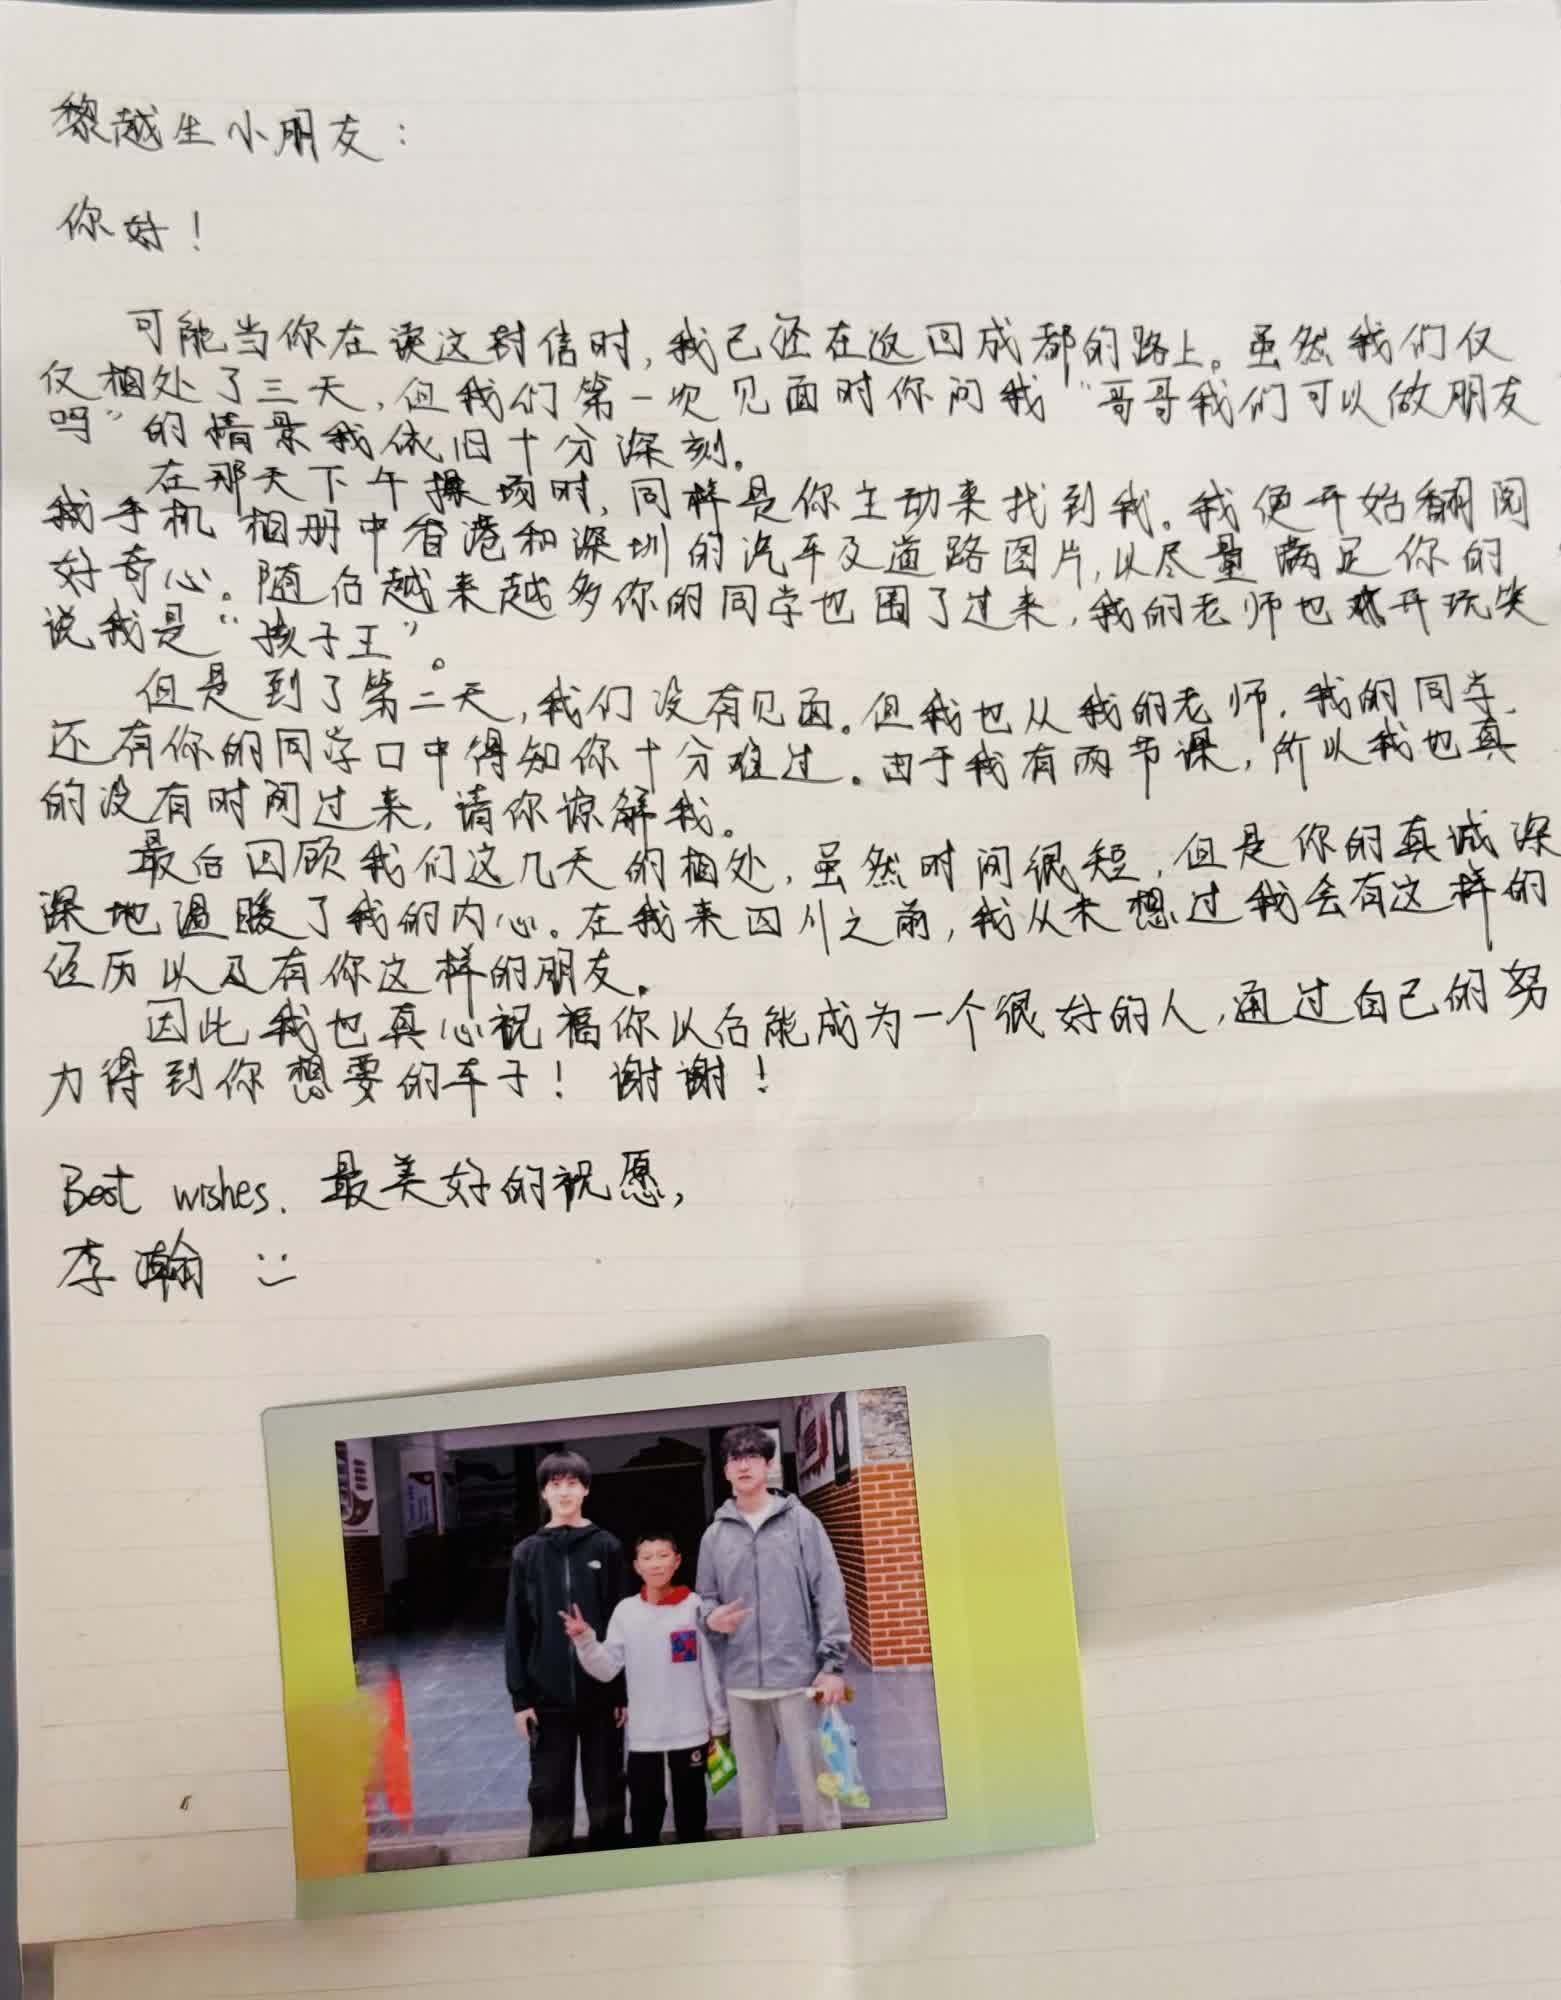 黎越生小朋友：
你好！
可能当你在读这封信时，我已经在返回成都的路上。虽然我们仅
仅相处了三天，但我们第一次见面时你问我“哥哥我们可以做朋友
吗”的情景我依旧十分深刻。
在那天下午操场时，同样是你主动来找到我。我便开始翻阅
我手机相册中香港和深圳的汽车及道路图片，以尽量满足你的
好奇心。随后越来越多你的同学也围了过来，我的老师也开玩笑
说我是“孩子王”。
但是到了第二天，我们没有见面。但我也从我的老师，我的同学，
还有你的同学口中得知你十分难过。由于我有两节课，所以我也真
的没有时间过来，请你谅解我。
最后回顾我们这几天的相处，虽然时间很短，但是你的真诚深
深地温暖了我的内心。在我来四川之前，我从未想过我会有这样的
经历以及有你这样的朋友。
因此我也真心祝福你以后能成为一个很好的人，通过自己的努
力得到你想要的车子！谢谢！
Best wishes. 最美好的祝愿，
李瀚